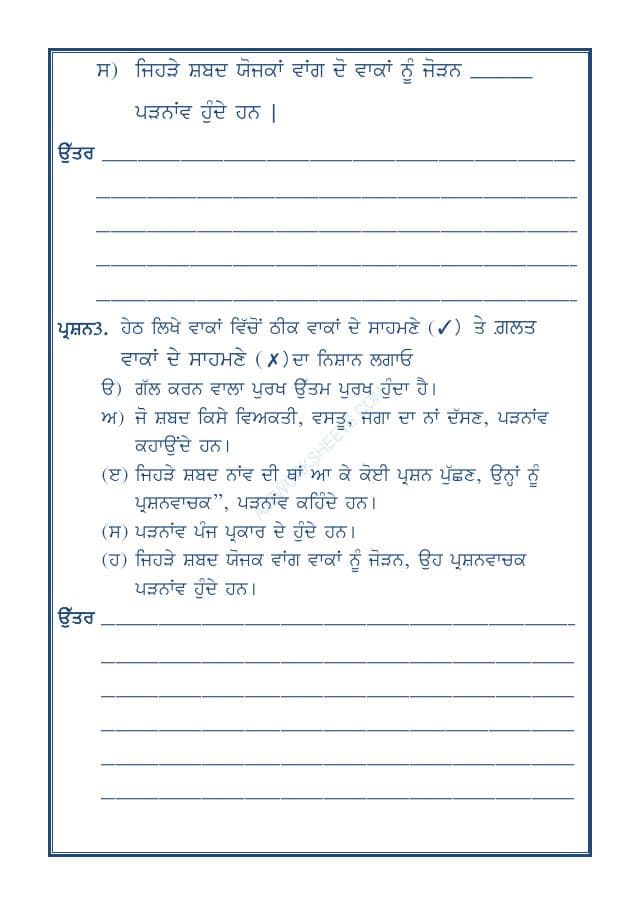 ਸ) ਜਿਹੜੇ ਸ਼ਬਦ ਯੋਜਕਾਂ ਵਾਂਗ ਦੋ ਵਾਕਾਂ ਨੂੰ ਜੋੜਨ ______
ਪੜਨਾਂਵ ਹੁੰਦੇ ਹਨ |
ਉੱਤਰ
ਪ੍ਰਸ਼ਨ3. ਹੇਠ ਲਿਖੇ ਵਾਕਾਂ ਵਿੱਚੋਂ ਠੀਕ ਵਾਕਾਂ ਦੇ ਸਾਹਮਣੇ (✓) ਤੇ ਗ਼ਲਤ
ਵਾਕਾਂ ਦੇ ਸਾਹਮਣੇ (✗)ਦਾ ਨਿਸ਼ਾਨ ਲਗਾਓ
ੳ) ਗੱਲ ਕਰਨ ਵਾਲਾ ਪੁਰਖ ਉੱਤਮ ਪੁਰਖ ਹੁੰਦਾ ਹੈ।
ਅ) ਜੋ ਸ਼ਬਦ ਕਿਸੇ ਵਿਅਕਤੀ, ਵਸਤੂ, ਜਗਾ ਦਾ ਨਾਂ ਦੱਸਣ, ਪੜਨਾਂਵ
ਕਹਾਉਂਦੇ ਹਨ।
(ੲ) ਜਿਹੜੇ ਸ਼ਬਦ ਨਾਂਵ ਦੀ ਥਾਂ ਆ ਕੇ ਕੋਈ ਪ੍ਰਸ਼ਨ ਪੁੱਛਣ, ਉਨ੍ਹਾਂ ਨੂੰ
ਪ੍ਰਸ਼ਨਵਾਚਕ”, ਪੜਨਾਂਵ ਕਹਿੰਦੇ ਹਨ।
(ਸ) ਪੜਨਾਂਵ ਪੰਜ ਪ੍ਰਕਾਰ ਦੇ ਹੁੰਦੇ ਹਨ।
(ਹ) ਜਿਹੜੇ ਸ਼ਬਦ ਯੋਜਕ ਵਾਂਗ ਵਾਕਾਂ ਨੂੰ ਜੋੜਨ, ਉਹ ਪ੍ਰਸ਼ਨਵਾਚਕ
ਪੜਨਾਂਵ ਹੁੰਦੇ ਹਨ।
ਉੱਤਰ